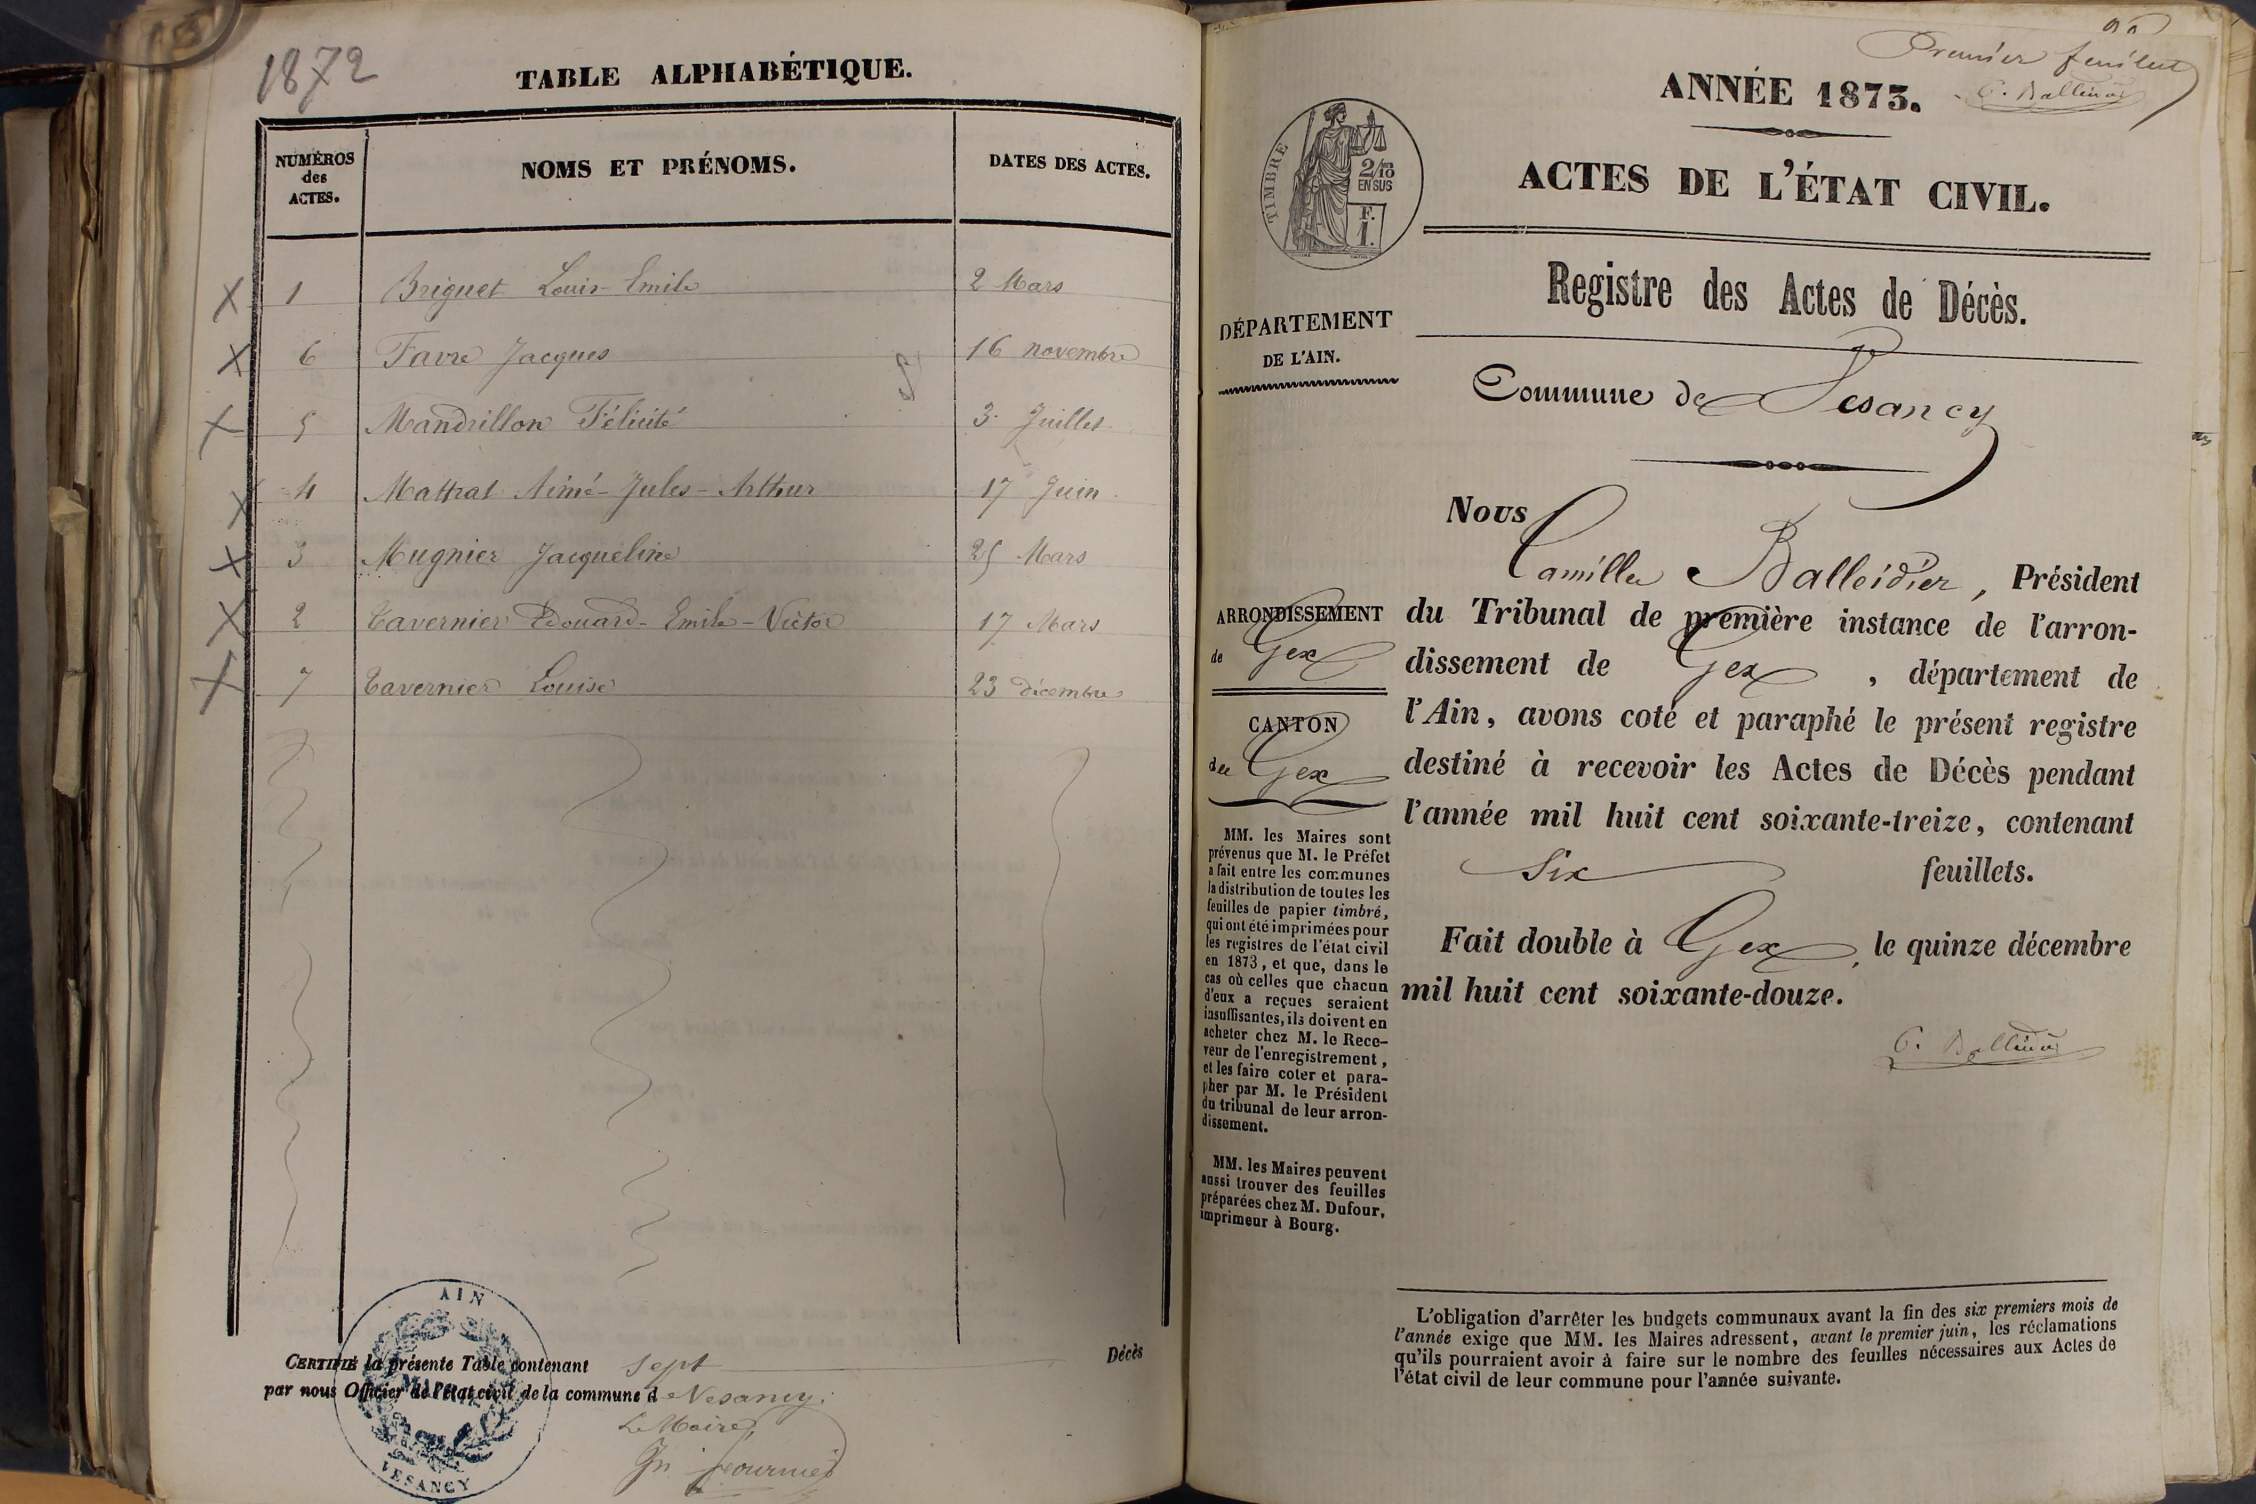 1872
TABLE ALPHABÉTIQUE.
NUMÉROS
des
ACTES.
NOMS ET PRÉNOMS.
DATES DES ACTES.
1 Briguet Louis-Emile 2 Mars
6 Favre Jacques 16 novembre
5 Mandrillon Félicité 3 Juillet
4 Mattrat Aimé-Jules-Arthur 17 Juin
3 Mugnier Jacqueline 25 Mars
2 Tavernier Edouard-Emile-Victor 17 Mars
7 Tavernier Louise 23 décembre
CERTIFIÉ la présente Table contenant sept Décès
par nous Officier de l'état civil de la commune de Vesancy.
Le Maire,
Fournier
AIN
MAIRIE
VESANCY
Premier feuillet
C. Balleidier
ANNÉE 1873.
TIMBRE
2/10
EN SUS
F.
1.
ACTES DE L'ÉTAT CIVIL.
Registre des Actes de Décès.
DÉPARTEMENT
DE L'AIN.
Commune de Vesancy
Nous
Camille Balleidier, Président
du Tribunal de première instance de l'arron-
dissement de Gex, département de
l'Ain, avons coté et paraphé le présent registre
destiné à recevoir les Actes de Décès pendant
l'année mil huit cent soixante-treize, contenant
Six feuillets.
Fait double à Gex, le quinze décembre
mil huit cent soixante-douze.
C. Balleidier
ARRONDISSEMENT
de Gex
CANTON
de Gex
MM. les Maires sont
prévenus que M. le Préfet
a fait entre les communes
la distribution de toutes les
feuilles de papier timbré,
qui ont été imprimées pour
les registres de l'état civil
en 1873, et que, dans le
cas où celles que chacun
d'eux a reçues seraient
insuffisantes, ils doivent en
acheter chez M. le Rece-
veur de l'enregistrement,
et les faire coter et para-
pher par M. le Président
du tribunal de leur arron-
dissement.
MM. les Maires peuvent
aussi trouver des feuilles
préparées chez M. Dufour,
imprimeur à Bourg.
L'obligation d'arrêter les budgets communaux avant la fin des six premiers mois de
l'année exige que MM. les Maires adressent, avant le premier juin, les réclamations
qu'ils pourraient avoir à faire sur le nombre des feuilles nécessaires aux Actes de
l'état civil de leur commune pour l'année suivante.